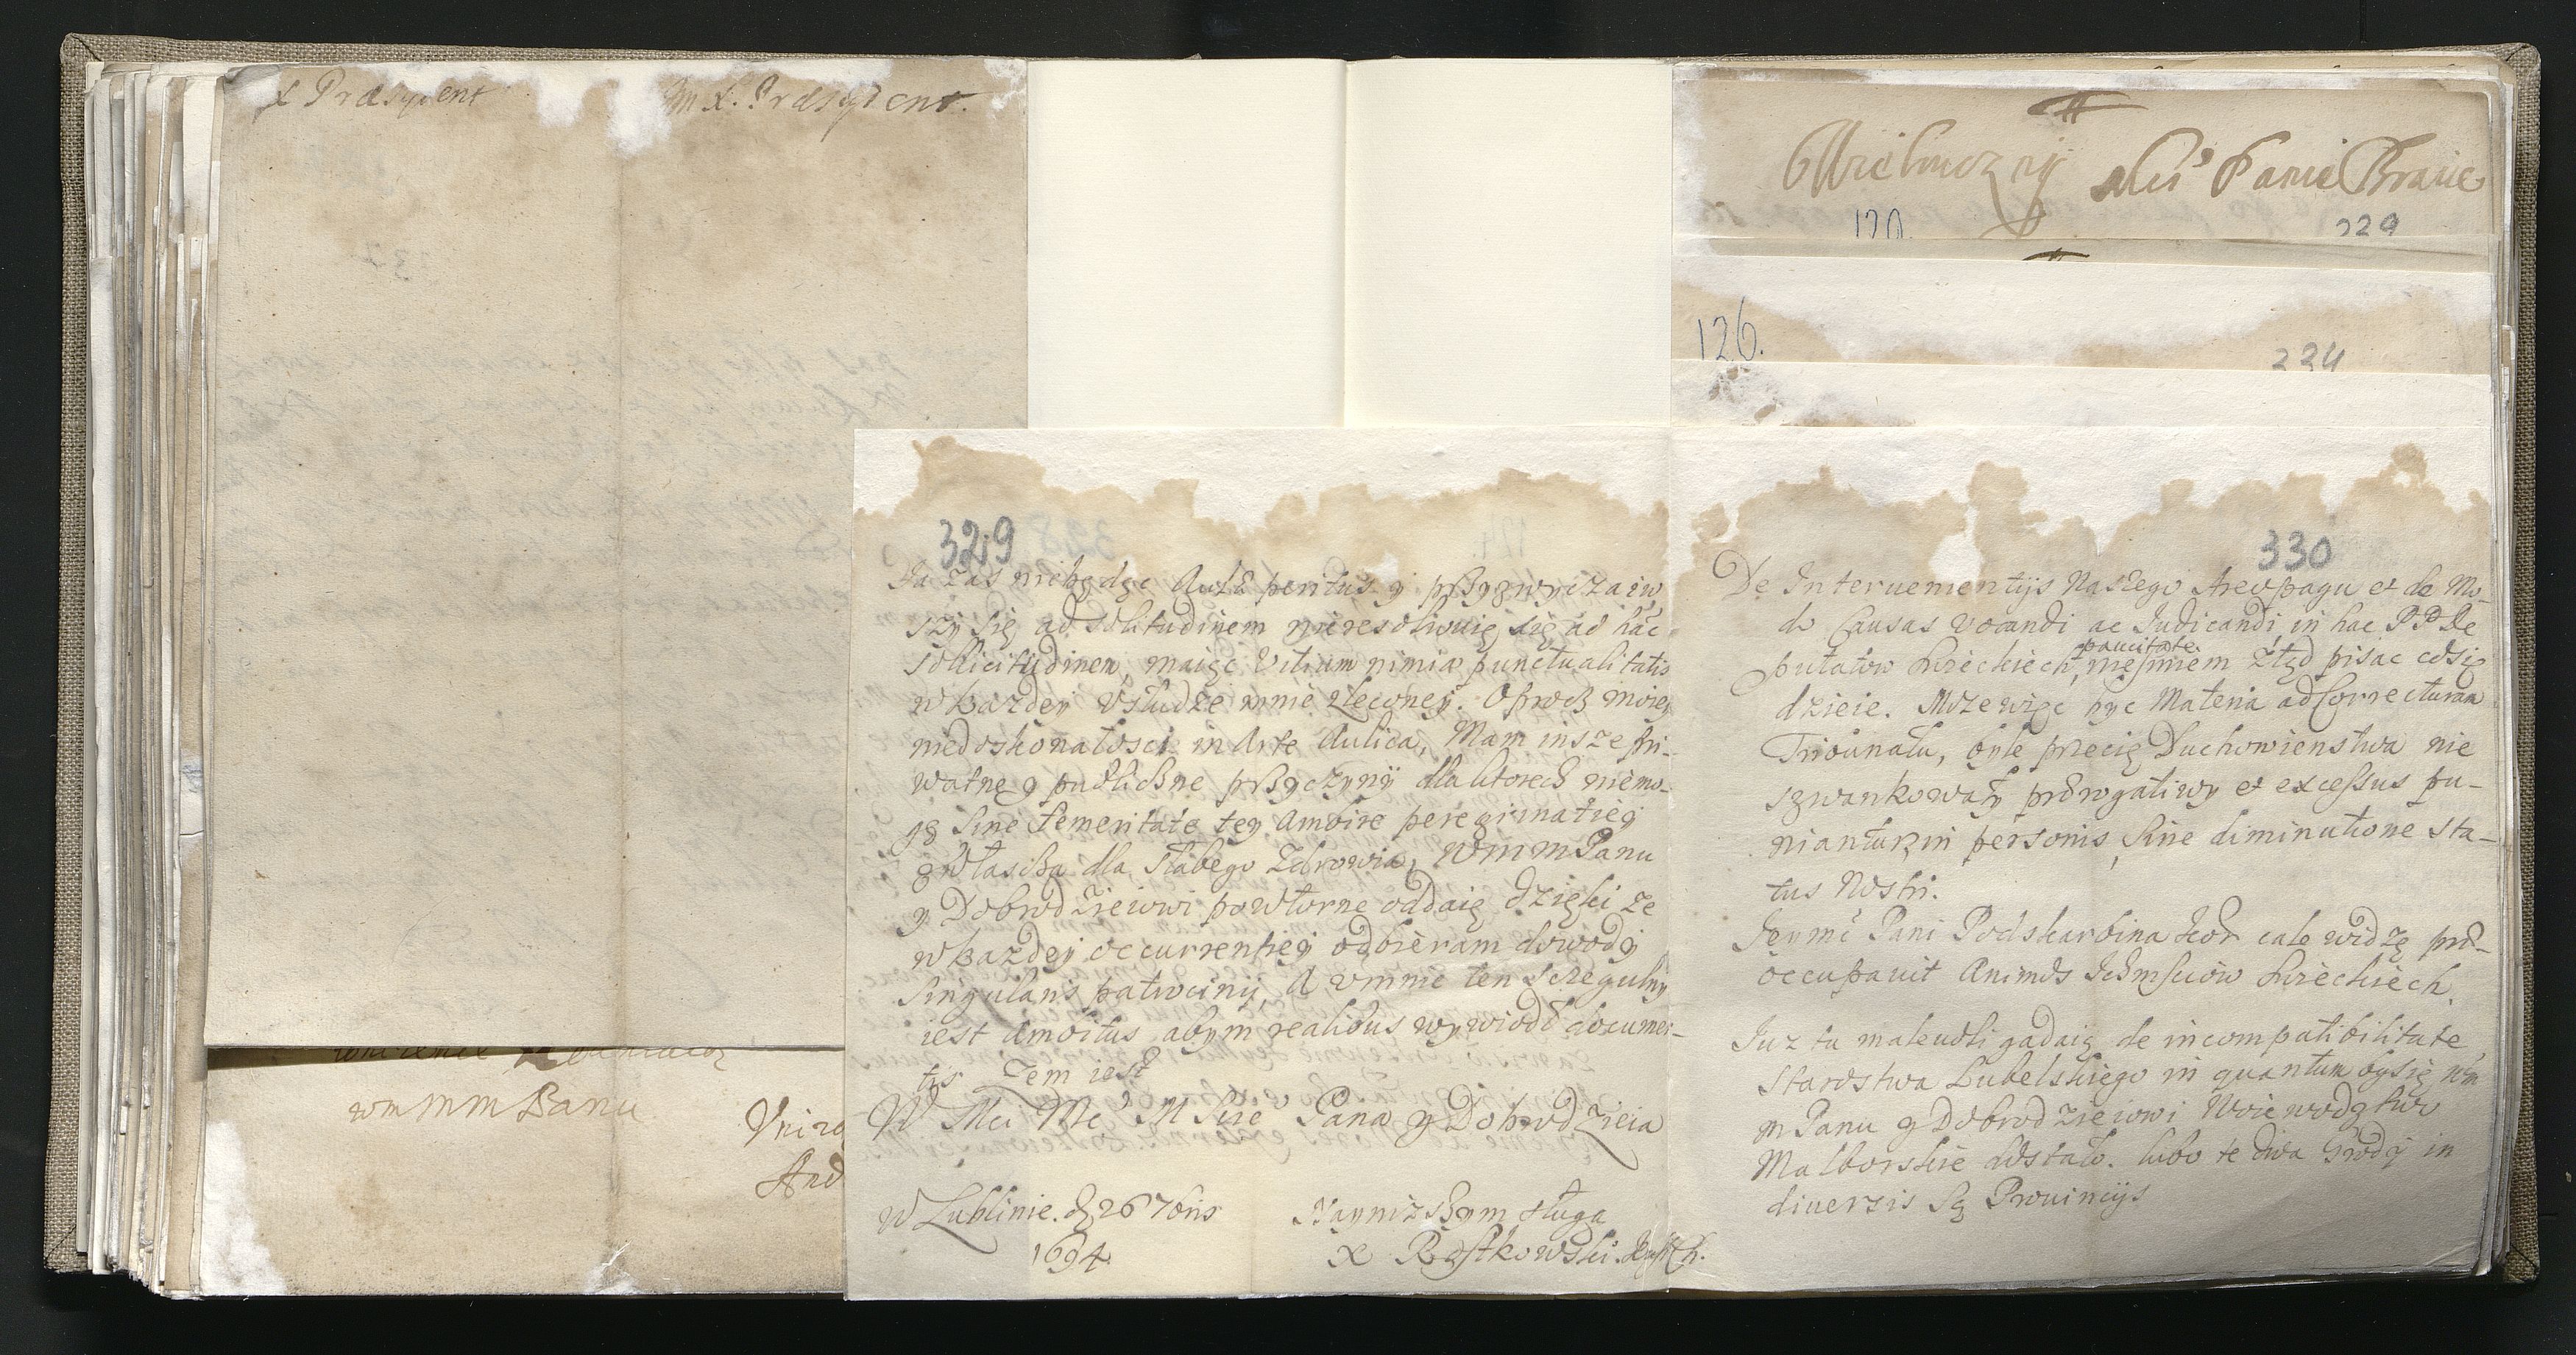 X Præsydent
Jm X. Præsydent.
wmMm Panu
Wielmozny Mci Panie
120.
229
126.
334
329
Ja zas niebędąc Aulæ peritus y przyzwyczaiw
szy się ad solitudinem nieresolwuię się ad hac
sollicitudinem, maiąc Vitium nimiæ punctualitatis
w kazdey Vsłudze mnie zleconey. Oprocz moiey
niedoskonałosci in Arte Aulica, Mam insze pri-
watne y publiczne przyczyny dla ktorech niemo-
gę Sine temeritate tey Ambire peregrinatiey
zwłascza dla słabego Zdrowia, WMmPanu
y Dobrodzieiowi powtorne oddaię dzięki ze
w kazdey occurrentiey odbieram dowody
Singularis patrocinij, A v mnie ten Sczegulny
iest Ambitus abym realibus wywiodł documen-
tis Zem iest
W Mci Mego M Pana y Dobrodzieia
W Lublinie. d 26 7bris
1694
Naynizszym sługa
X Rostkowski
330
De Interuementijs Naszego Areopagu et de Mo-
do Causas vocandi ac Judicandi, in hac PP De
paucitate
putatow Swieckiech, nieśmiem ztąd pisac co się
dzieie. Moze więc byc Materia ad Correcturam
Tribunału, byle przecię Duchowienstwa nie
szwankowały prærogatiwy et excessus pu-
niantur in personis, sine diminutione sta-
tus Nostri.
Jeymć Pani Podskarbina Kor cale widzę præ-
occupauit Animos Ichmsciow Swieckiech.
Juz tu maleuoli gadaią de incompatibilitate
Starostwa Lubelskiego in quantum by się Wm
m Panu y Dobrodzieiowi Woiewodztwo
Malborskie dostało. lubo te dwa Grody in
diuersis Są Prouincijs